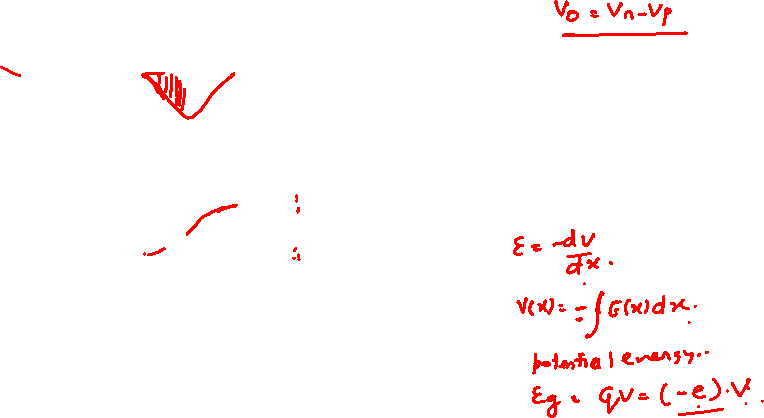 V₀ = Vn - Vp
ε = -dV/dx.
V(x) = -∫ε(x)dx.
potential energy..
Eg = qV = (-e).V.